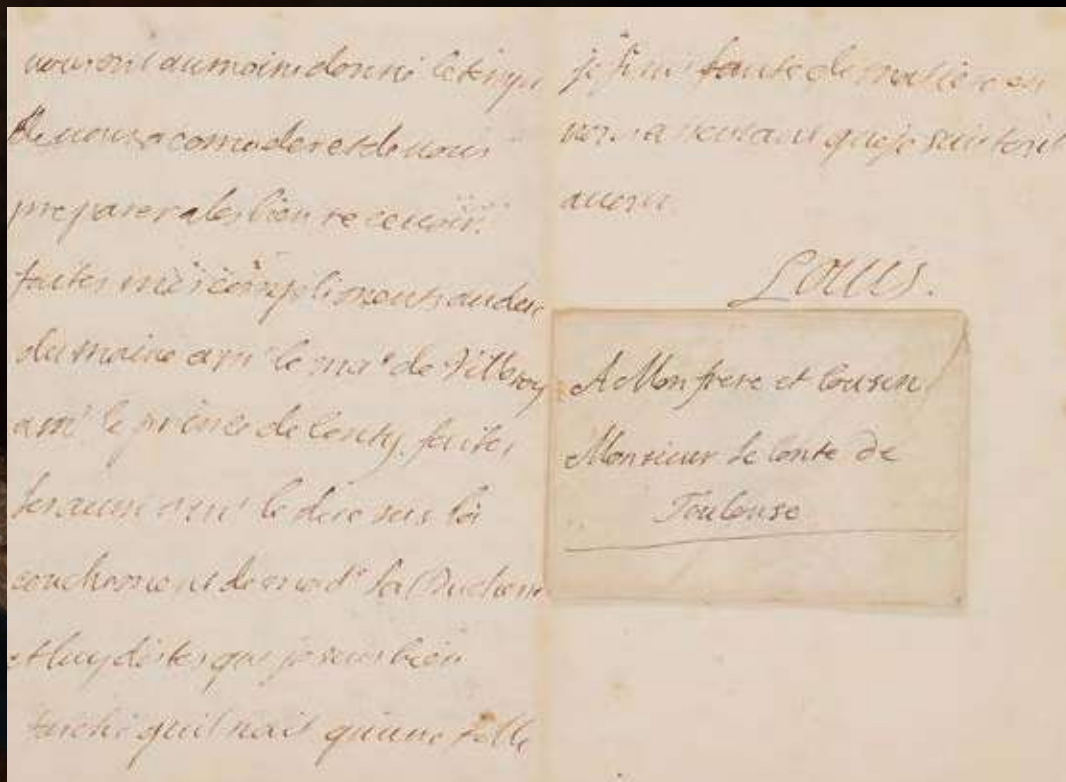 nous ont au moins donné le temps
de nous acomoder et de nous
preparer a les bien recevoir.
faites mes compliments au duc
du maine a mr le mal de Villeroy
a mr le prince de Conty. faites
les aussi a mr le duc sur la
couchement de made la Duchesse
et luy dites que je suis bien
faché quil nait quune fille
je finis faute de matiere en
vous assurant que je suis tout
a vous.
Louis.
A Mon frere et Cousin
Monsieur le Conte de
Toulouse